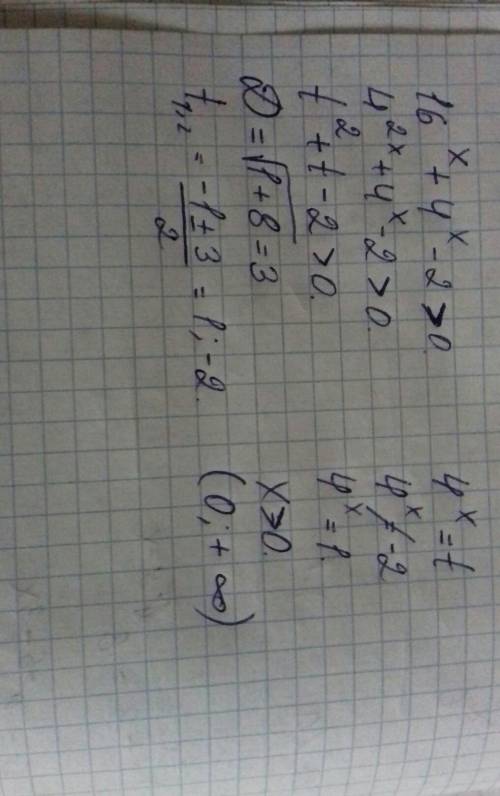 16^x + 4^x - 2 > 0.
4^2x + 4^x - 2 > 0.
t^2 + t - 2 > 0.
D = √1 + 8 = 3
t1,2 = -1 ± 3 / 2 = 1; -2.
4^x = t
4^x ≠ -2
4^x = 1.
x > 0.
(0; + ∞)